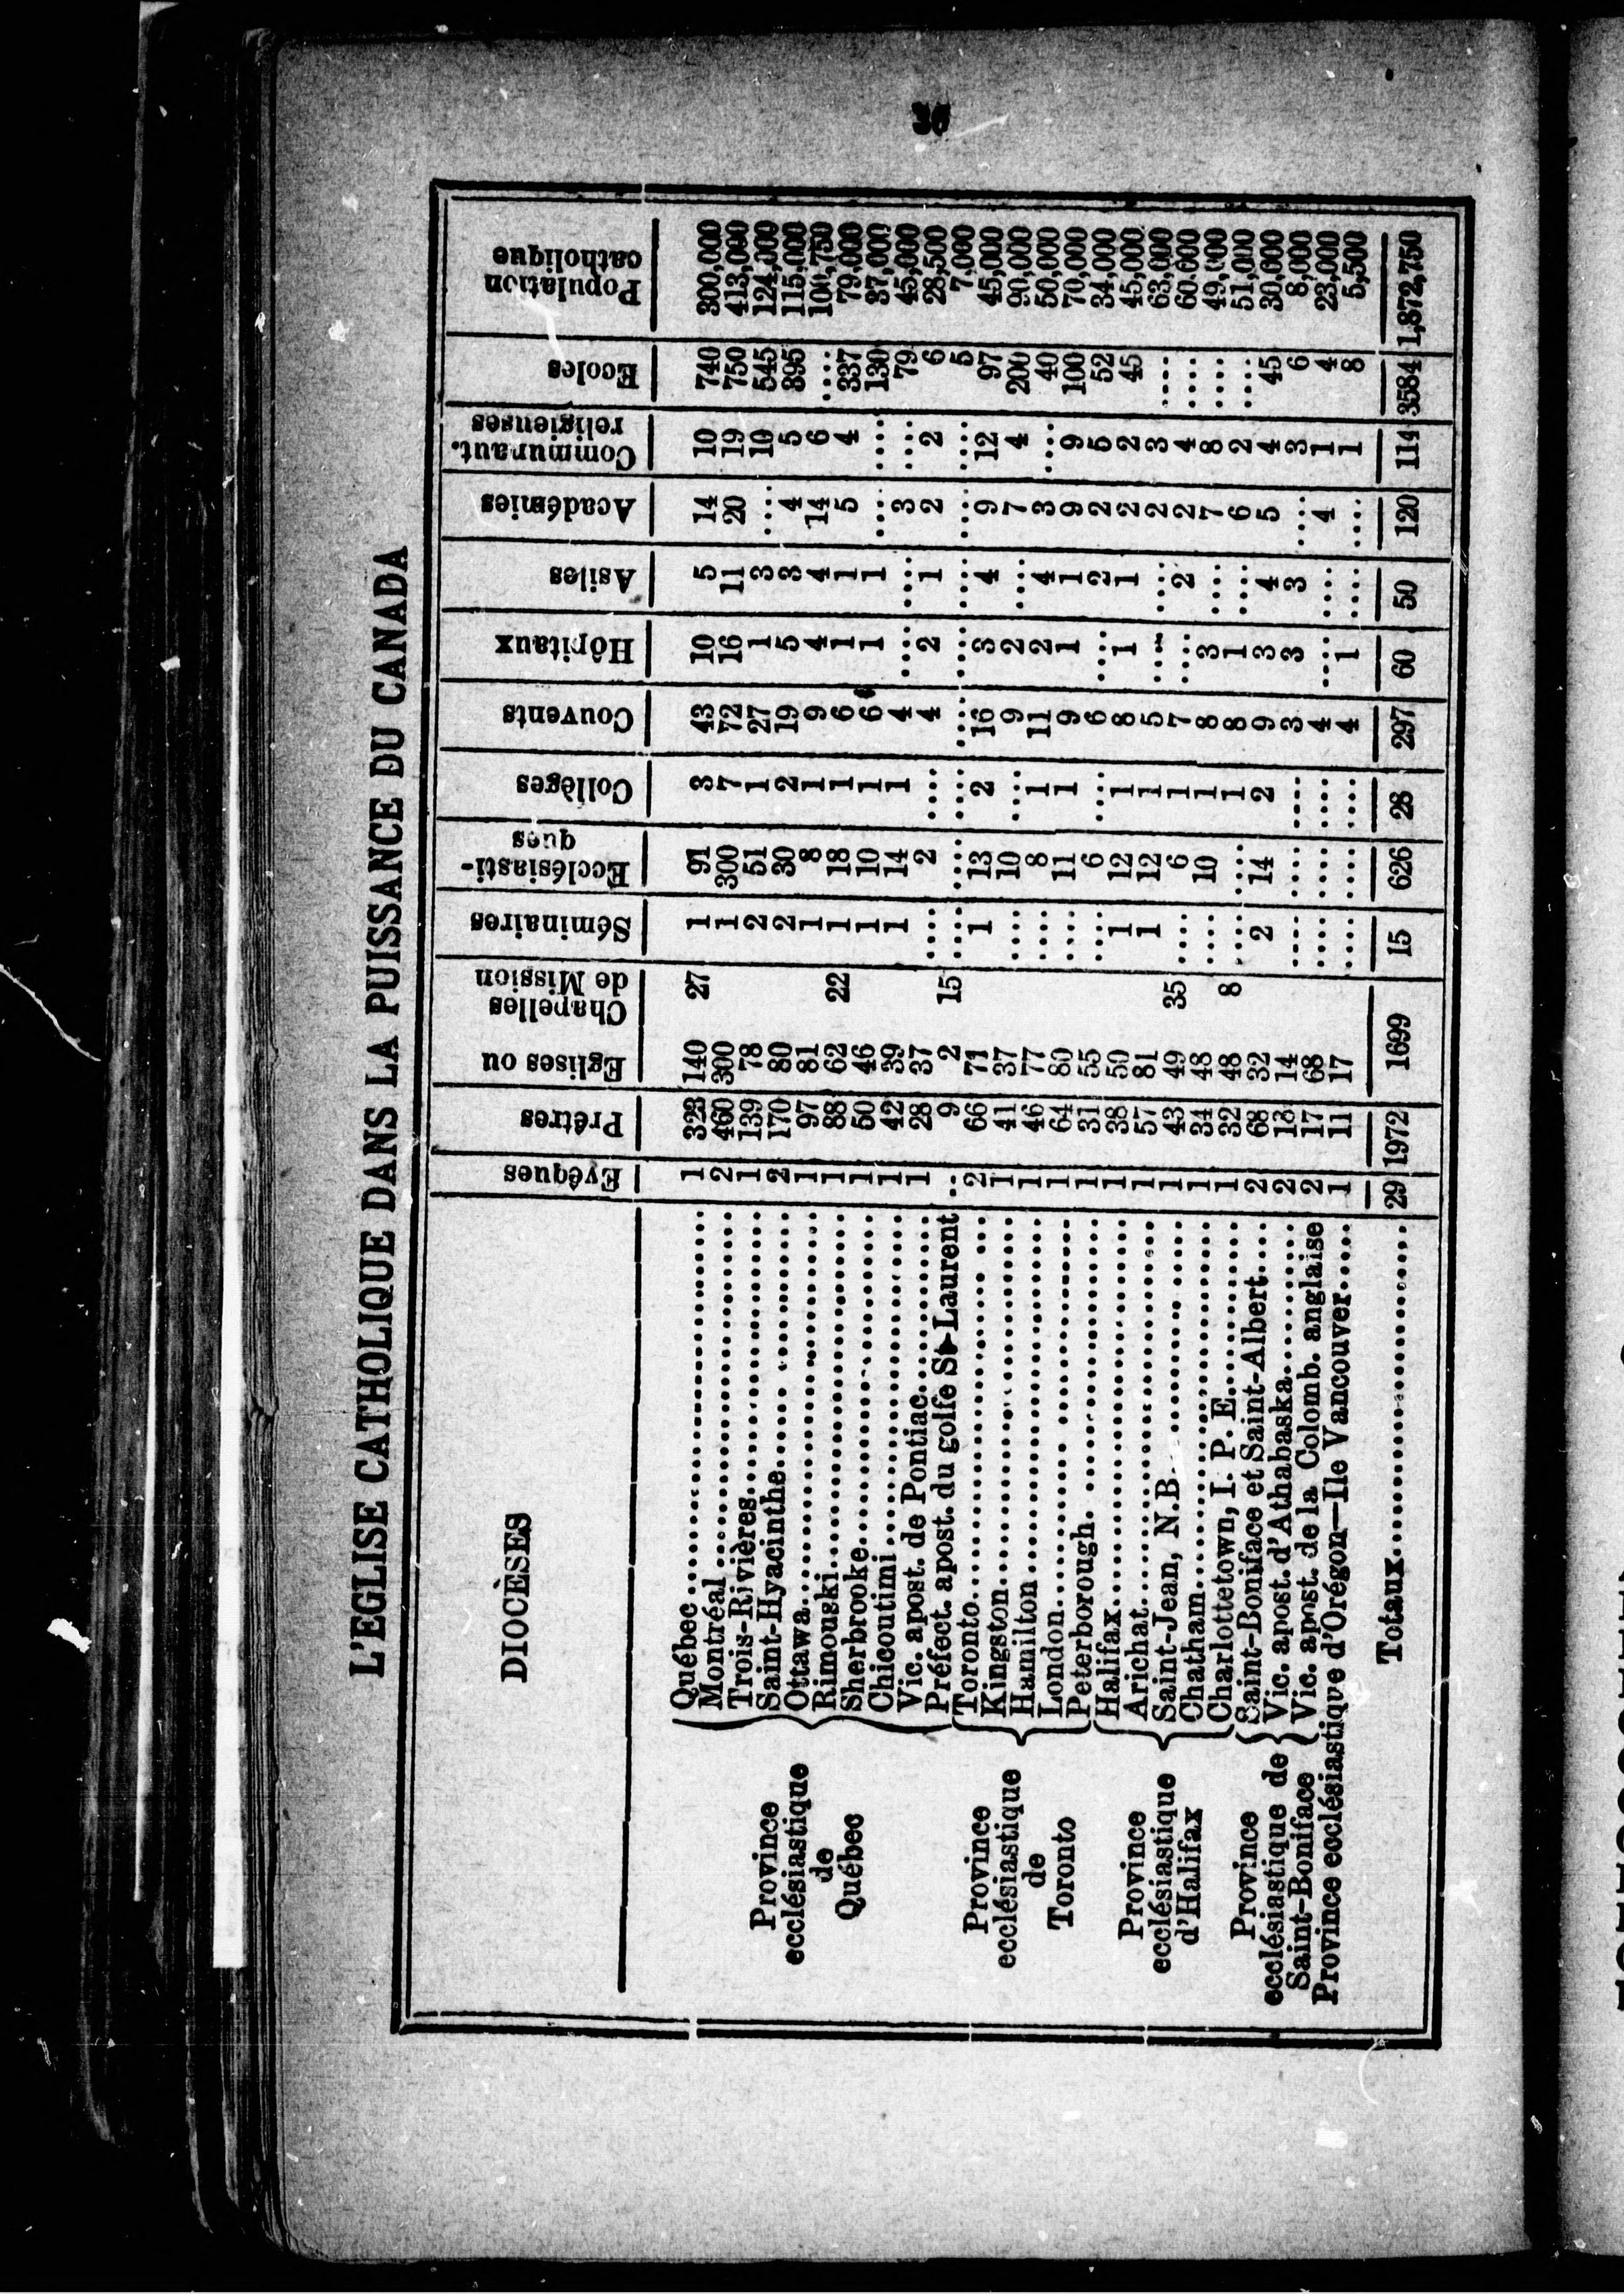 36
L'EGLISE CATHOLIQUE DANS LA PUISSANCE DU CANADA
DIOCÈSES Evêques Prêtres Eglises ou Chapelles de Mission Séminaires Ecclésiasti-ques Collèges Couvents Hôpitaux Asiles Académies Communaut. religieuses Ecoles Population catholique
Province ecclésiastique de Québec
Québec 1 323 140 27 1 91 3 43 10 5 14 10 740 300,000
Montréal 2 460 300 1 300 7 72 16 11 20 19 750 413,000
Trois-Rivières 1 139 78 2 51 1 27 1 3 .... 10 545 124,000
Saint-Hyacinthe 2 170 80 2 30 2 19 5 3 4 5 395 115,000
Ottawa 1 97 81 1 8 1 9 4 4 14 6 .... 100,750
Rimouski 1 88 62 22 1 18 1 6 1 1 5 4 337 79,000
Sherbrooke 1 50 46 1 10 1 6 1 1 .... .... 130 37,000
Chicoutimi 1 42 39 1 14 1 4 .... .... 3 .... 79 45,000
Vic. apost. de Pontiac 1 28 37 .... 2 .... 4 2 1 2 2 6 28,500
Préfect. apost. du golfe St-Laurent .. 9 2 15 .... .... .... .... .... .... .... .... 5 7,000
Province ecclésiastique de Toronto
Toronto 2 66 71 1 13 2 16 3 4 9 12 97 45,000
Kingston 1 41 37 .... 10 .... 9 2 .... 7 4 200 90,000
Hamilton 1 46 77 .... 8 1 11 2 4 3 .... 40 50,000
London 1 64 80 .... 11 1 9 1 1 9 9 100 70,000
Peterborough 1 31 55 .... 6 .... 6 .... 2 2 5 52 34,000
Province ecclésiastique d'Halifax
Halifax 1 38 50 1 12 1 8 1 1 2 2 45 45,000
Arichat 1 57 81 1 12 1 5 .... .... 2 3 .... 63,000
Saint-Jean, N.B 1 43 49 35 .... 6 1 7 .... 2 2 4 .... 60,000
Chatham 1 34 48 .... 10 1 8 3 .... 7 8 .... 49,000
Charlottetown, I. P. E 1 32 48 8 .... .... 1 8 1 .... 6 2 .... 51,000
Province ecclésiastique de Saint-Boniface
Saint-Boniface et Saint-Albert 2 68 32 2 14 2 9 3 4 5 4 45 30,000
Vic. apost. d'Athabaska 2 18 14 .... .... .... 3 3 3 .... 3 6 8,000
Vic. apost. de la Colomb. anglaise 2 17 68 .... .... .... 4 .... .... 4 1 4 23,000
Province ecclésiastique d'Orégon—Ile Vancouver 1 11 17 .... .... .... 4 1 .... .... 1 8 5,500
Totaux 29 1972 1699 15 626 28 297 60 50 120 114 3584 1,872,750